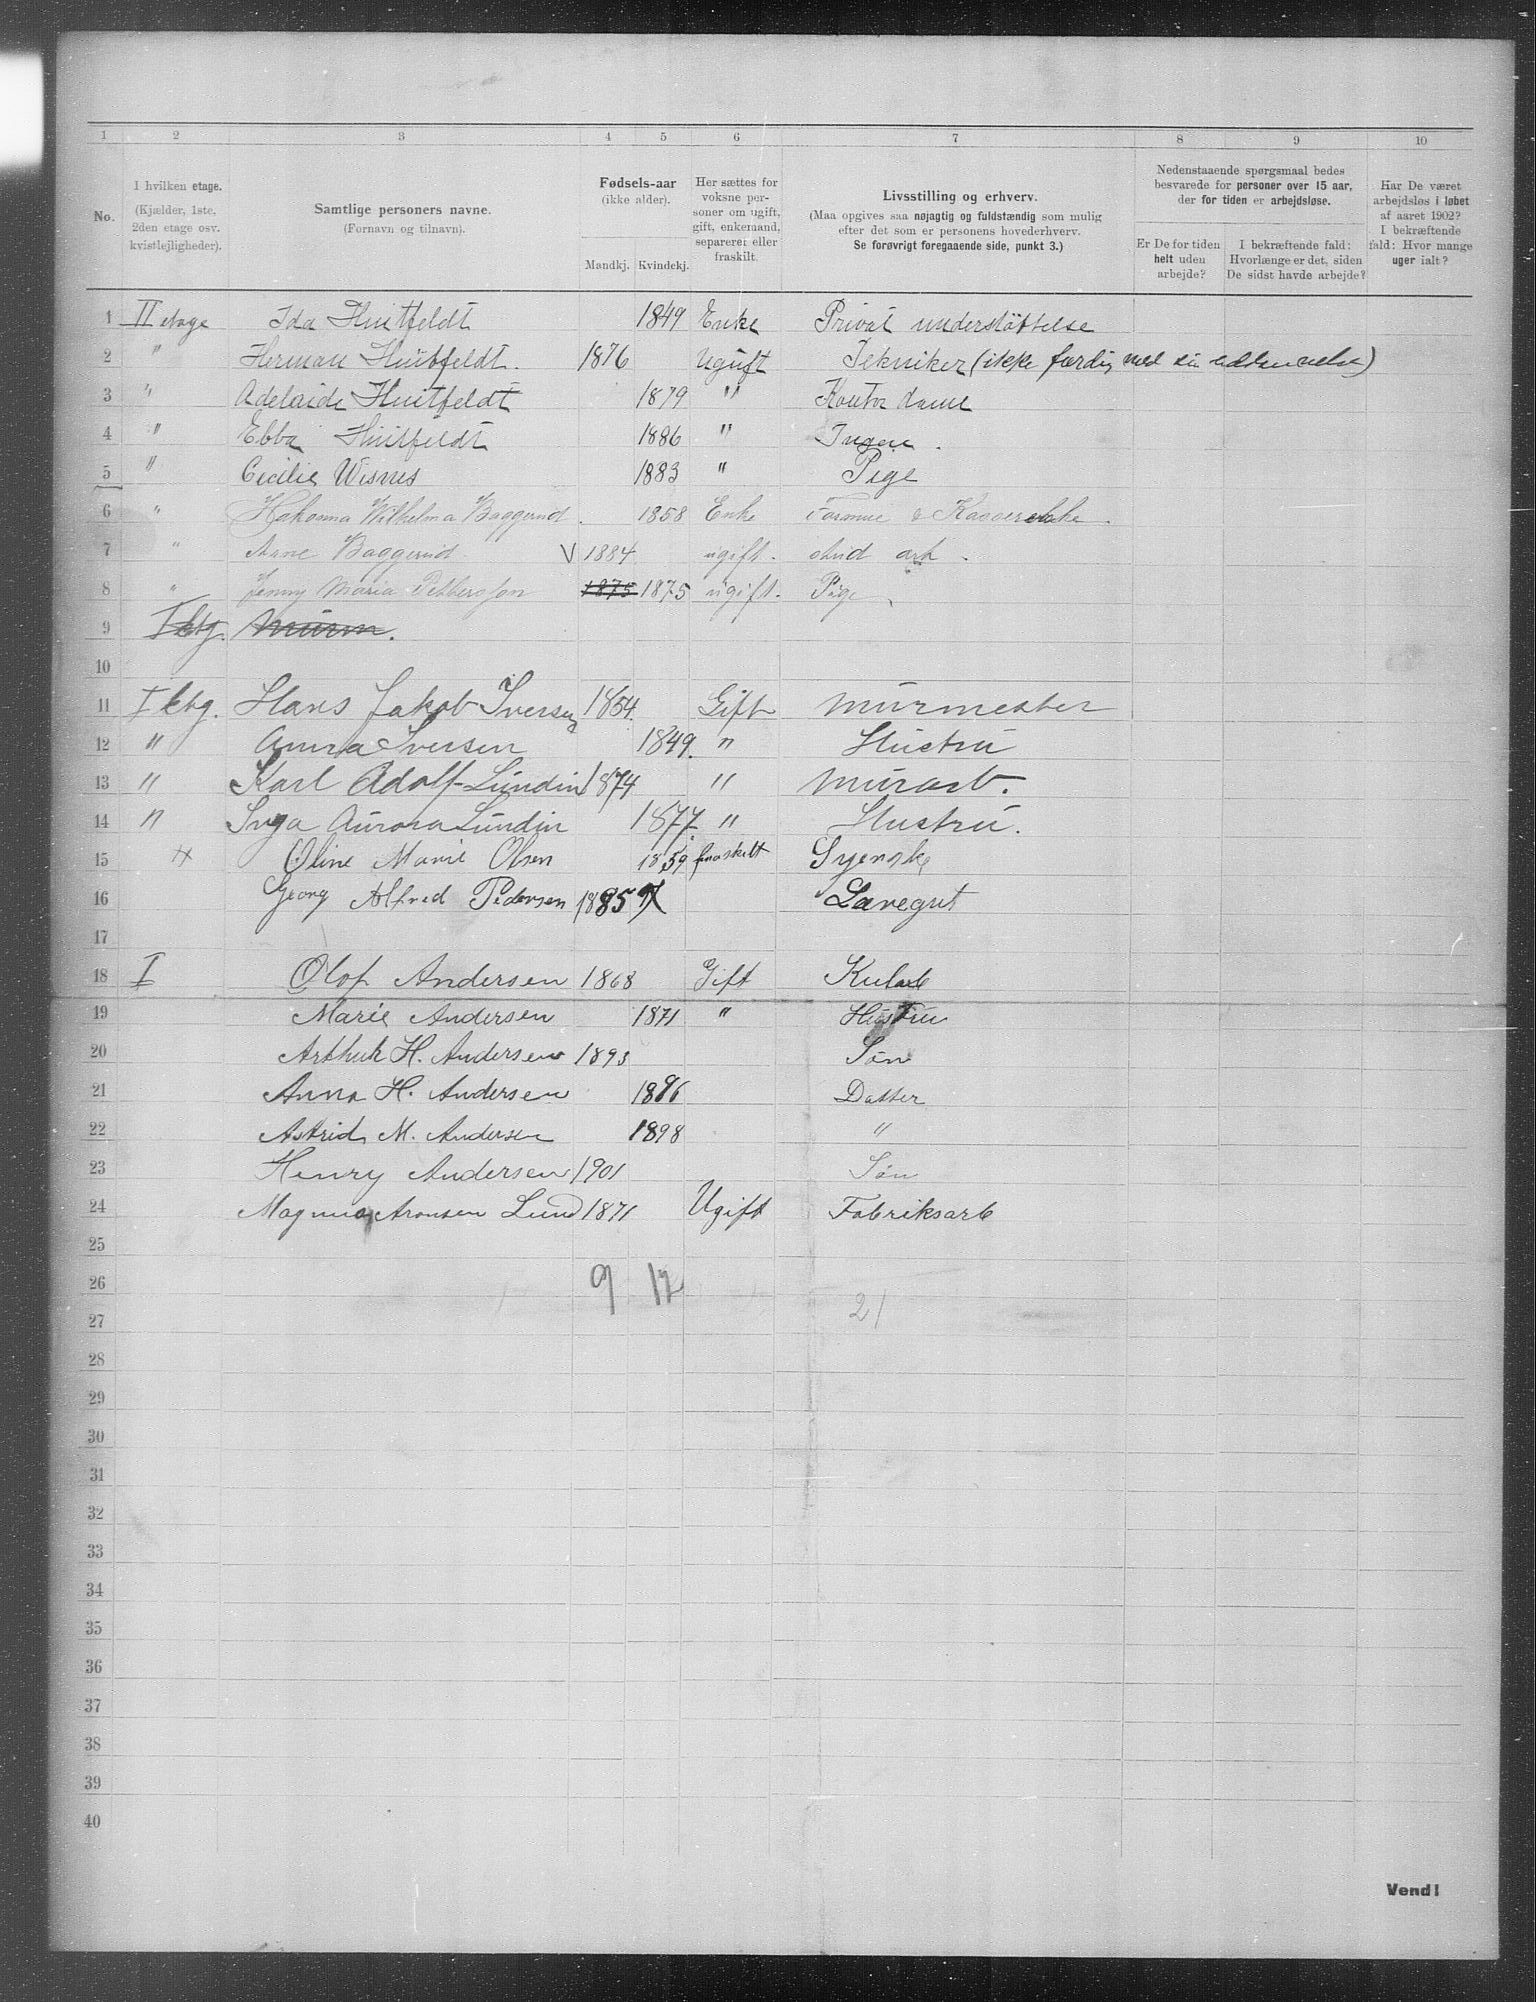 1 2 3 4 5 6 7 8 9 10
No.
I hvilken etage. (Kjælder, 1ste, 2den etage osv. kvistlejligheder).
Samtlige personers navne. (Fornavn og tilnavn).
Fødsels-aar (ikke alder). Mandkj. Kvindekj.
Her sættes for voksne personer om ugift, gift, enkemand, separeret eller fraskilt.
Livsstilling og erhverv. (Maa opgives saa nøjagtig og fuldstændig som mulig efter det som er personens hovederhverv. Se forøvrigt foregaaende side, punkt 3.)
Nedenstaaende spørgsmaal bedes besvarede for personer over 15 aar, der for tiden er arbejdsløse.
Er De for tiden helt uden arbejde?
I bekræftende fald: Hvorlænge er det, siden De sidst havde arbejde?
Har De været arbejdsløs i løbet af aaret 1902? I bekræftende fald: Hvor mange uger ialt?
1 II etage Ida Huitfeldt 1849 Enke Privat understøttelse
2 " Herman Huitfeldt. 1876 Ugift Tekniker (ikke færdig med sin uddannelse)
3 " Adelaide Huitfeldt 1879 " Kontor dame
4 " Ebba Huitfeldt 1886 " Ingen.
5 " Cecilie Wisnes 1883 " Pige
6 " Wilhelma Baggerud. 1858 Enke Formue &
7 " Arne Baggerud V 1884 ugift. stud ark.
8 " Jenny Maria Pettersson 1875 1875 ugift. Pige
9 I etg. Murm.
10
11 I etg. Hans Jakob Iversen 1854. Gift Murmester
12 " Anna Iversen 1849. " Hustru
13 " Karl Adolf Lundin 1874 " Murarb.
14 " Inga Aurora Lundin 1877. " Hustru.
15 Oline Marie Olsen 1859 fraskilt Syerske
16 Georg Alfred Pedersen 1885 Læregut
17
18 I Olof Andersen 1868 Gift
19 Marie Andersen 1871 " Hustru
20 Arthur H. Andersen 1893 Søn
21 Anna H. Andersen 1896 Datter
22 Astrid M. Andersen 1898 "
23 Henry Andersen 1901 Søn
24 Magnus Aronsen Lund 1871 Ugift Fabriksarb
25
26 9 12
27 21
28
29
30
31
32
33
34
35
36
37
38
39
40
Vend!